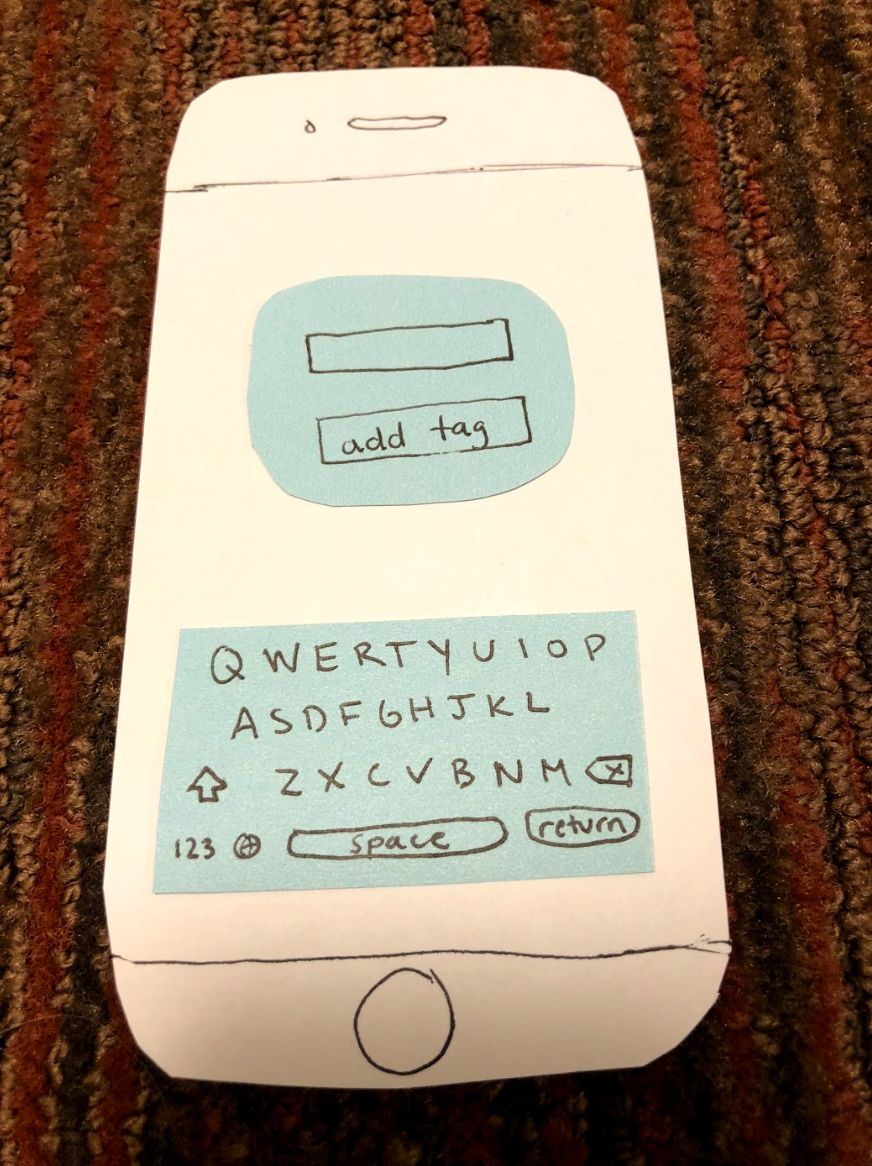 add tag
QWERTYUIOP
ASDFGHJKL
ZXCVBNM
123 space return